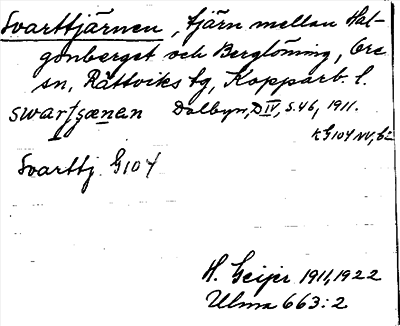 Svarttjärnen, tjärn mellan Hal-
gonberget och Berglöming, Ore
sn, Rättviks tg, Kopparb. l.
Dalbyn, D IV, S. 46, 1911.
K G104 NV,
Svarttj. G104
H. Geijer 1911, 1922
Ulma 663:2